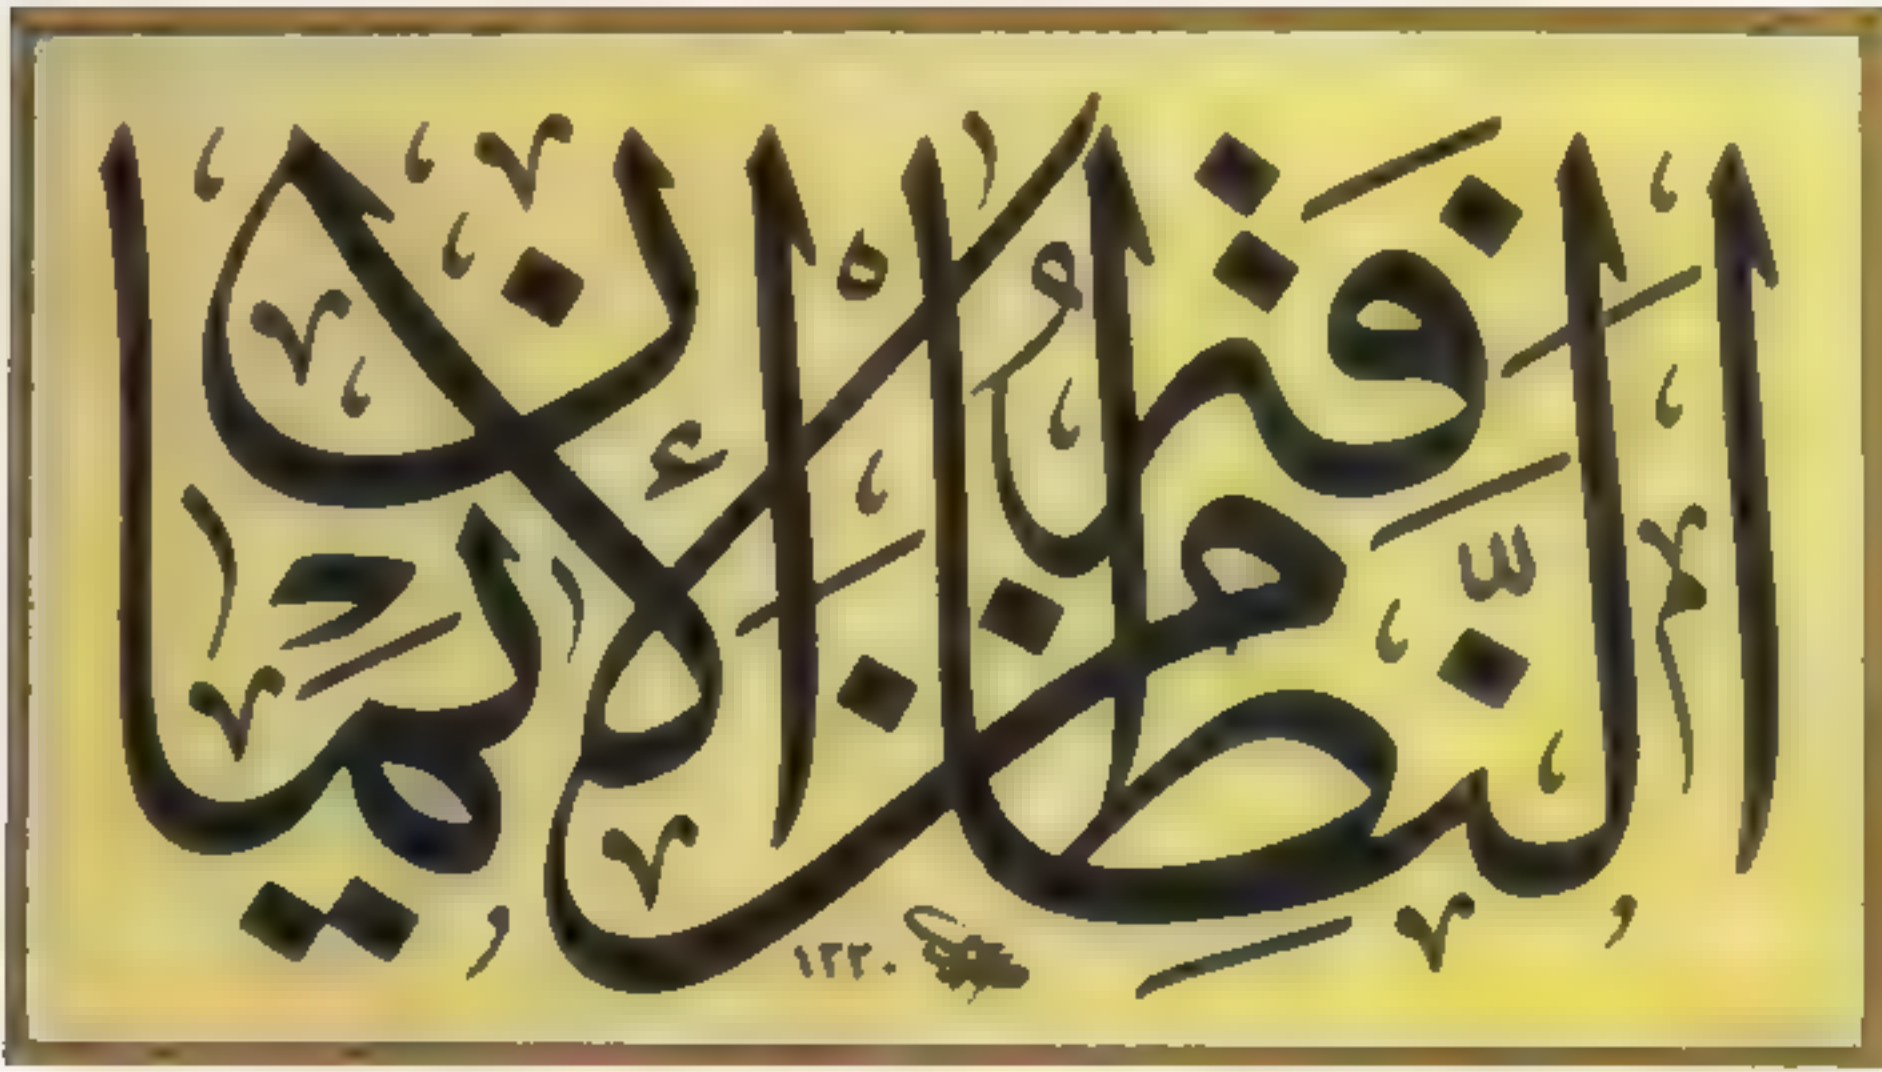 النظافة من الإيمان
١٣٣٠